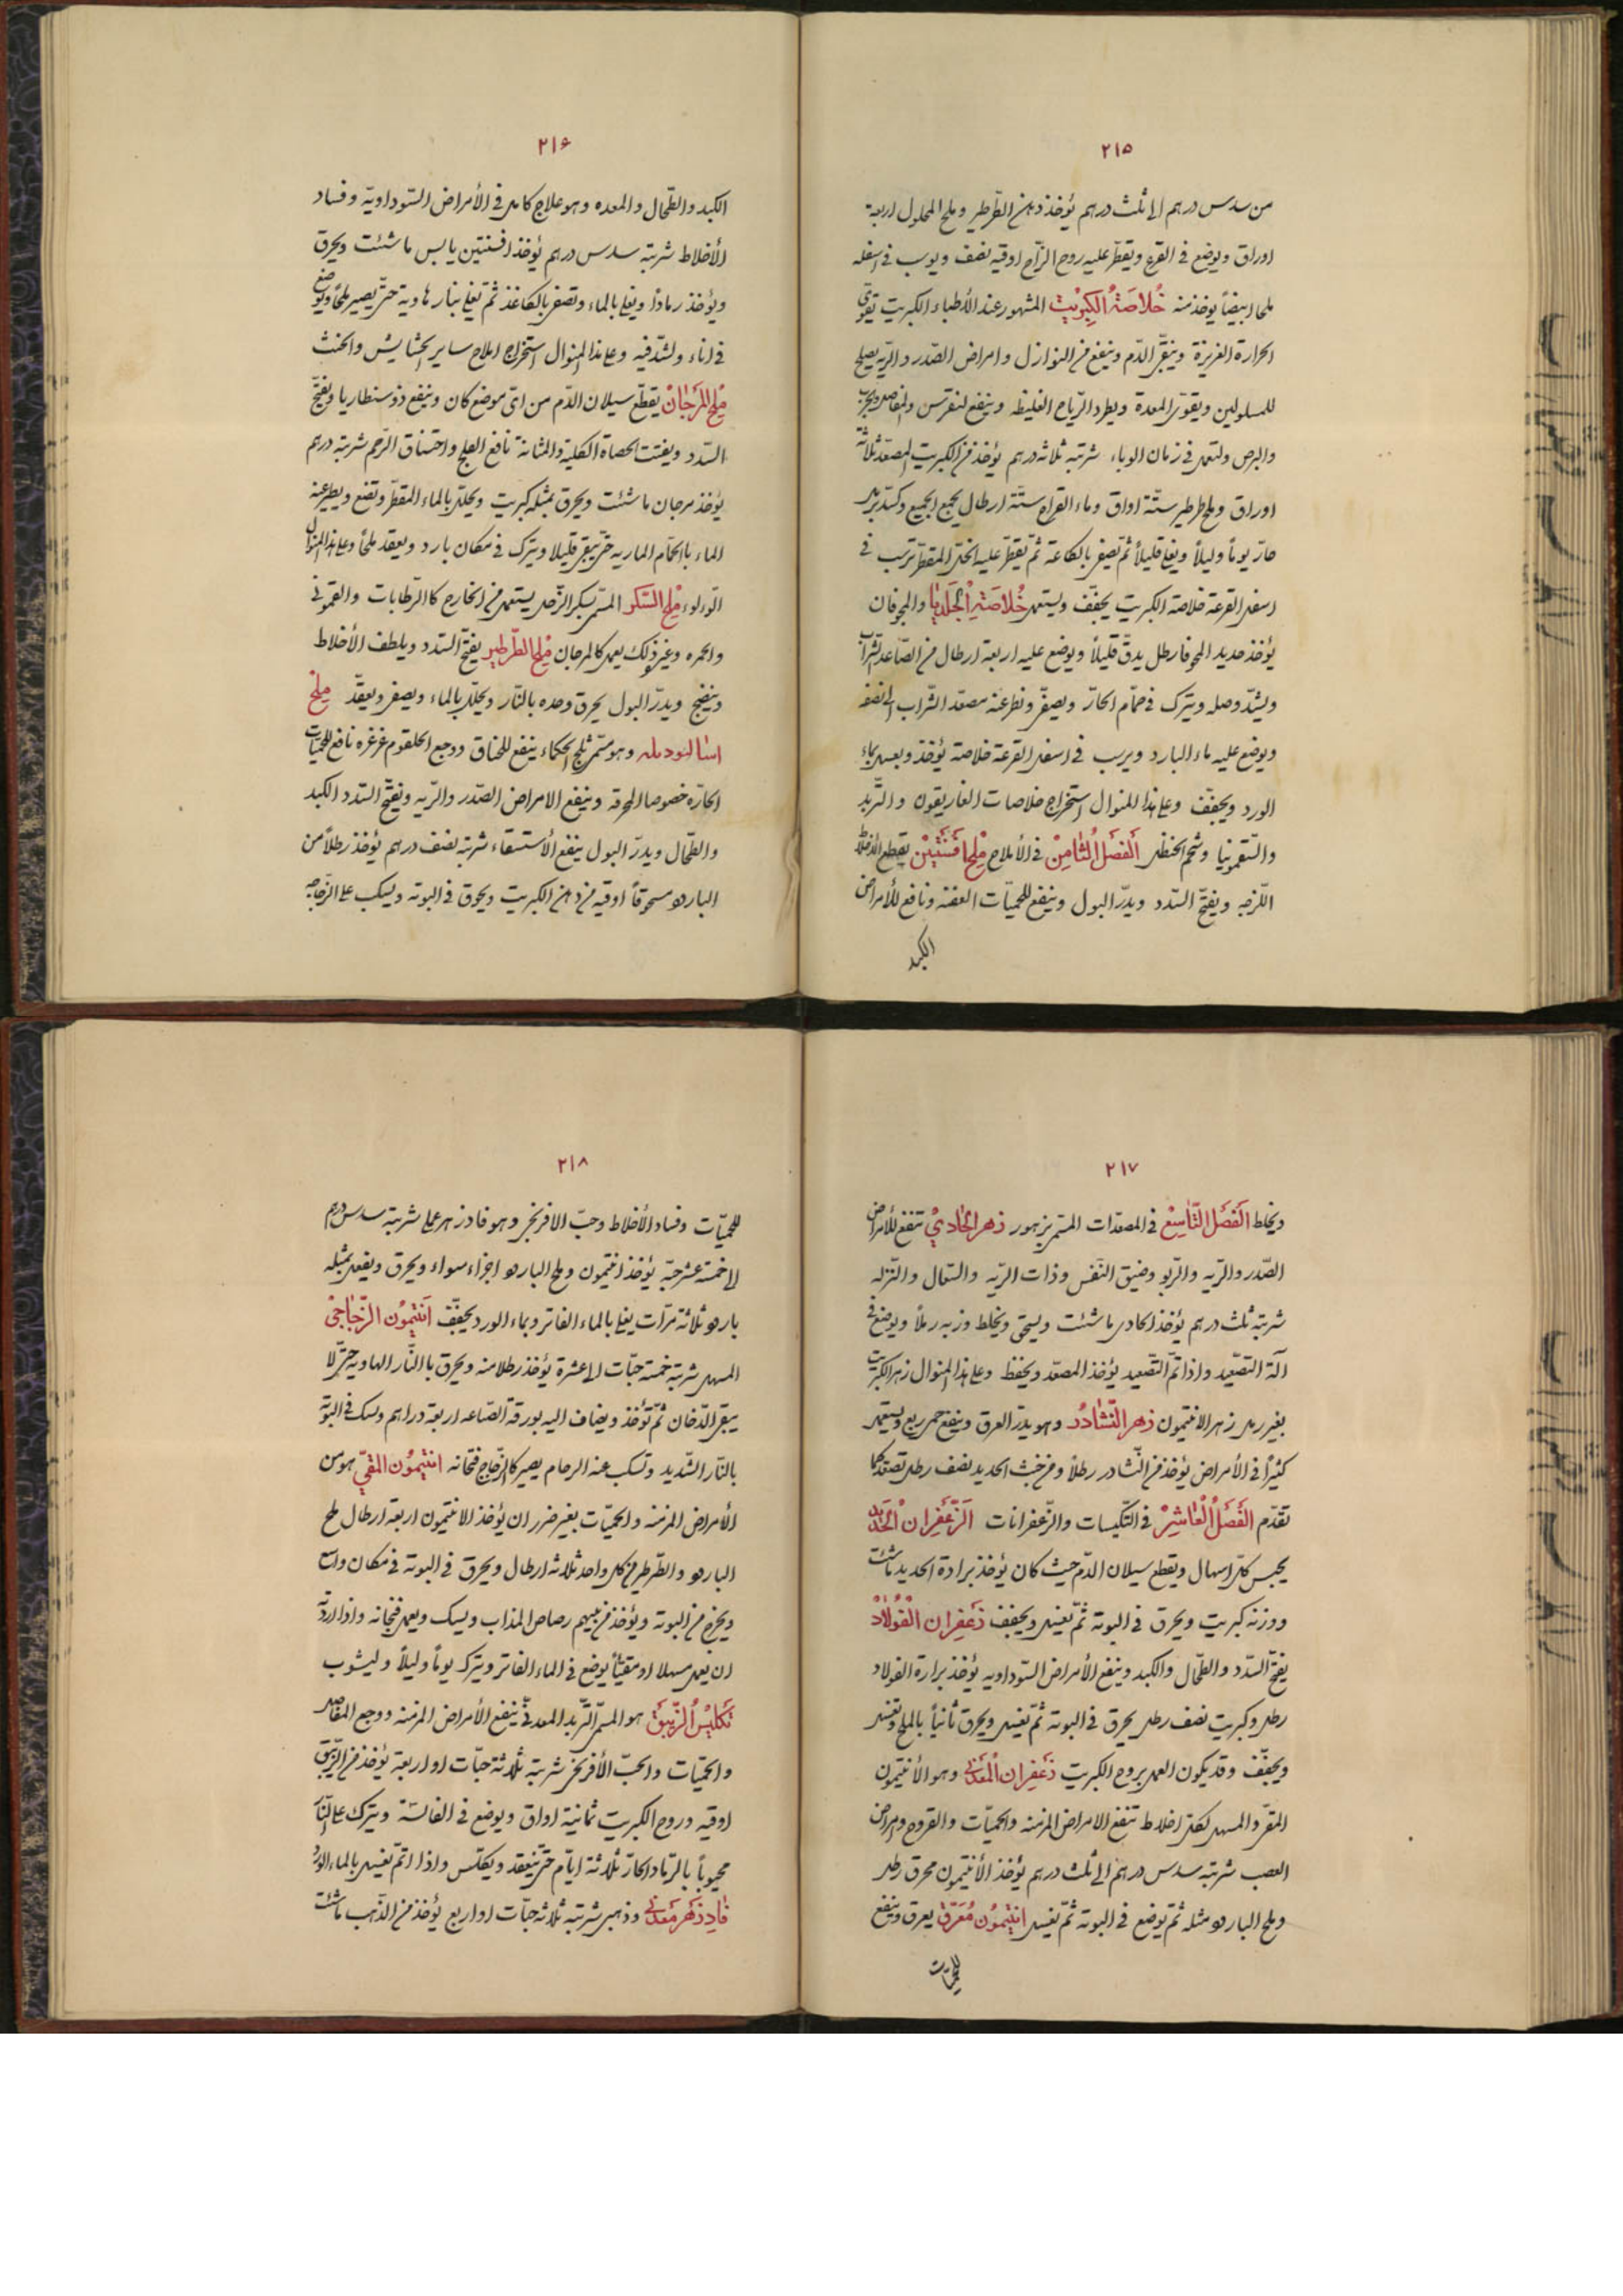 ٢١٥
من سدس درهم الى ثلث درهم يؤخذ دهن الطّرطير وملح المحلول اربعة
اوراق ويوضع في القرع ويقطّر عليه روح الزّاج اوقيه نصف ويرسب في اسفله
ملحا ابيضاً يوخذ منه خُلاصَةُ الكِبريْتِ المشهور عند الأطباء الكبريت يقوّي
الحرارة الغريزة وينقّى الدّم وينفع من النوازل وامراض الصّدر والرّيه يصلح
للمسلولين ويقوّى المعدة ويطرد الرّياح الغليظه وينفع لنقرس والمفاصل والجرب
والبرص وتستعمل في زمان الوباء شربته ثلاثه درهم يؤخذ من الكبريت المصعّد ثلاثة
اوراق وملح طرطير ستّة اواق وماء القراح ستّة ارطال يجمع الجميع وكسّد برمل
حارّ يوماً وليلاً ويغلى قليلاً ثمّ يصفى بالكاغذ ثمّ يقطّر عليه الخلّ المقطّر ترسب في
اسفل القرعة خلاصة الكبريت يجفّف ويستعمل خُلاصَةُ الجَلَديْا والمجوفان
يؤخذ حديد المجوفا رطل يدقّ قليلاً ويوضع عليه اربعة ارطال من الصّاعد الشراب
ويشدّ وصله ويترك في حمّام الحارّ ويصفّى ونطرعنه مصعّد الشّراب الى نصفه
ويوضع عليه ماء البارد ويرسب في اسفل القرعة خلاصة يؤخذ وبعسل بماء
الورد ويجفّف وعلى هذا المنوال استخراج خلاصات الغاريقون والتّربد
والسّقمونيا وشحم الحنظل اَلفَصلُ الثّامِنْ في الأملاح مِلح اَفسَنتَيْن يقطع الأخلاط
اللّزجه ويفتّح السّدد ويدرّ البول وينفع للحميّات العفنه ونافع للأمراض
الكبد
٢١۶
الكبد والطّحال والمعده وهو علاج كامل في الأمراض السّوداويّة وفساد
الأخلاط شربته سدس درهم يؤخذ افسنتين يابس ما شئت ويحرق
ويؤخذ رماداً ويغلى بالماء وتصفى بالكاغذ ثمّ يغلى بنار هادية حتّى يصير ملحاً ويوضع
في اناء ولشدّ فيه وعلى هذا المنوال استخراج املاح ساير الحشايش والخنث
مِلحِ المَرَجٰانْ يقطّع سيلان الدّم من اىّ موضع كان وينفع ذوسنطاريا ويفتّح
السّدد ويفتت الحصاة الكلية والمثانة نافع الفلج واختناق الرّحم شربته درهم
يؤخذ مرجان ما شئت ويحرق بمثله كبريت ويحلّ بالماء المقطّر وتضع ويطرعنه
الماء بالحمّام الماريه حتّى يبقى قليلا ويترك في مكان بارد ويعقد ملحاً وعلى هذا المنوال
اللّؤلؤ مِلحِ السّكر المسمّى بسكر الزّحل يستعمل من الخارج كالرّطابات والقمونى
والحمره وغير ذلك يعمل كالمرجان مِلح الطّرطير يفتّح السّدد ويلطف الأخلاط
وينضج ويدرّ البول يحرق وحده بالنّار ويحلّ بالماء ويصفى ويعقّد مِلحُ
وهو مسمّى ثلج الحكماء ينفع للخناق ووجع الحلقوم غرغره نافع للحميّات
الحارّه خصوصا المحرقه وينفع الامراض الصّدر والرّيه ويفتّح السّدد الكبد
والطّحال ويدرّ البول ينفع الأستسقاء شربته نصف درهم يؤخذ رطلاً من
البارهو مسحوقاً اوقيه من دهن الكبريت ويحرق في البوته ويسكب على الزّجاجه
٢١٧
ويخلط اَلفَصَل التّاسِعْ في المصعّدات المسمّى بزهور زهر الجٰاديْ تنفع للأمراض
الصّدر والرّيه والرّبو وضيق النّفس وذات الرّيه والسّعال والنّزله
شربته ثلث درهم يؤخذ الجادى ما شئت ويسحق ويخلط وزنه رملاً ويوضع في
آلة التّصعّيد واذا تمّ التّصعّيد يؤخذ المصعّد ويحفظ وعلى هذا المنوال زهر الكبريت
بغير رمل زهر الانتيمون زهر النّشٰادُر وهو يدرّ العرق وينفع حمى ربع ويستعمل
كثيراً في الأمراض يؤخذ من النّشادر رطلاً ومن خبث الحديد نصف رطل تصعّد كما
تقدّم الفَصَلُ الْعٰاشِرْ في التّكيسات والزّعفرانات اَلزَّعْفِران الحَديد
يحبس كلّ اسهال ويقطع سيلان الدّم حيث كان يؤخذ برادة الحديد ما شئت
ووزنه كبريت ويحرق في البوته ثمّ يغسل ويجفف زَعفِران الْفُولاٰدْ
يفتّح السّدد والطّحال والكبد وينفع الأمراض السّوداويه يؤخذ برارة الفولاد
رطل وكبريت نصف رطل يحرق في البوته ثمّ يغسل ويحرق ثانياً بالملح وتغسل
ويجفّف وقد يكون العمل بروح الكبريت زَعفِران المَعدَنى وهو الأنتيمون
المقىّ والمسهل لكلّ اخلاط تنفع الامراض المزمنه والحميّات والقروح وامراض
العصب شربته سدس درهم الى ثلث درهم يؤخذ الأنتيمون محرق رطل
وملح البارهو مثله ثمّ يوضع في البوته ثمّ يغسل انتيمُون مُعَرّق يعرق وينفع
للحميّات
٢١٨
للحميّات وفساد الأخلاط وحبّ الافرنجى وهو فادزهر عملى شربته سدس درهم
الى خمسة عشر حبّه يؤخذ انتيمون وملح البارهو اجزاء سواء ويحرق ويفعل بمثله
بارهو ثلاثة مرّات يغلى بالماء الفاتر وبماء الورد يجفّف اَنتيمُون الزّجٰاجىْ
المسهل شربته خمسة حبّات الى عشرة يؤخذ رطلا منه ويحرق بالنّار الهاديه حتّى لا
يبقى الدّخان ثمّ تؤخذ ويضاف اليه بورقة الصّاعه اربعة دراهم وسك في البوتة
بالنّار الشّديد وتسكب عنه الرحام يصير كالزّجاج فنحانه انتيمُون المقىّ هو من
الأمراض المزمنه والحميّات بغير ضرر ان يؤخذ الانتيمون اربعة ارطال ملح
البارهو والطّرطير من كلّ واحد ثلاثه ارطال ويحرق في البوته في مكان واسع
ويخرج من البوته ويؤخذ من بينهم رصاص المذاب ويسك ويعمل فنجانه واذا اردتّ
ان يعمل مسهلا او مقيّئاً يوضع في الماء الفاتر ويترك يوماً وليلاً وليشوب
تَكليْسُ الزّيبَقْ هو المسمّى التّربد المعدنىّ ينفع الأمراض المزمنه ووجع المفاصل
والحميّات والحبّ الأفرنجى شربته ثلاثة حبّات او اربعة يؤخذ من الزّيبق
اوقيه وروح الكبريت ثمانية اواق ويوضع في الغالسّة ويترك على النّار
محبوباً بالرّماد الحارّ ثلاثة ايّام حتّى ينعقد ويكلّس واذا اتمّ تغسل بالماء الورد
فٰادِ زَهَرمَعدَنى وذهبى شربته ثلاثه حبّات او اربع يؤخذ من الذّهب ما شئت